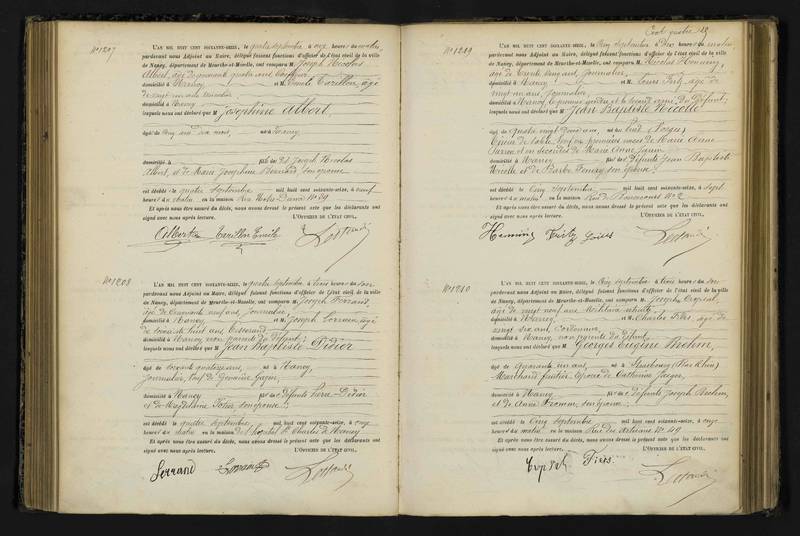 N° 1207
L'AN MIL HUIT CENT SOIXANTE-SEIZE, le quatre septembre à onze heures du matin,
pardevant nous Adjoint au Maire, délégué faisant fonctions d'officier de l'état civil de la ville
de Nancy, département de Meurthe-et-Moselle, ont comparu M Joseph Nicolas
Albert, âgé de quarante quatre ans,
domicilié à Nancy et M. Emile Tarillon, âgé
de vingt
domicilié à Nancy
lesquels nous ont déclaré que M Joséphine Albert,
âgé de cinq ans six mois, né à Nancy
domicilié à fille de Joseph Nicolas
Albert, et de Marie Joséphine son épouse
est décédé le quatre septembre mil huit cent soixante-seize, à neuf
heures du matin en la maison Rue Notre Dame N° 39
Et après nous être assuré du décès, nous avons dressé le présent acte que les déclarants ont
signé avec nous après lecture. L'OFFICIER DE L'ÉTAT CIVIL,
Albert Tarillon Emile
N° 1208
L'AN MIL HUIT CENT SOIXANTE-SEIZE, le quatre septembre à trois heures du soir
pardevant nous Adjoint au Maire, délégué faisant fonctions d'officier de l'état civil de la ville
de Nancy, département de Meurthe-et-Moselle, ont comparu M Joseph Ferrand,
âgé de cinquante neuf ans, journalier
domicilié à Nancy et M. Joseph Lorrain, âgé
de soixante huit ans, Tisserand
domicilié à Nancy, non parents du défunt;
lesquels nous ont déclaré que M Jean Baptiste Didier
âgé de soixante quatorze ans, né à Nancy,
journalier, veuf de
domicilié à Nancy fils de défunts Didier
et de Magdelaine son épouse;
est décédé le quatre septembre, mil huit cent soixante-seize, à onze
heures du matin en la maison de l'hôpital St Charles de Nancy
Et après nous être assuré du décès, nous avons dressé le présent acte que les déclarants ont
signé avec nous après lecture. L'OFFICIER DE L'ÉTAT CIVIL,
Ferrand
Cent quatre
N° 1209
L'AN MIL HUIT CENT SOIXANTE-SEIZE, le cinq septembre à dix heures du matin,
pardevant nous Adjoint au Maire, délégué faisant fonctions d'officier de l'état civil de la ville
de Nancy, département de Meurthe-et-Moselle, ont comparu M Nicolas Hemming,
âgé de trente cinq ans, journalier
domicilié à Nancy et M. Louis âgé de
vingt un ans, journalier
domicilié à Nancy, le premier gendre et le second ami du défunt;
lesquels nous ont déclaré que M Jean Baptiste Nicolle
âgé de quatre vingt ans, né à (Vosges)
veuf en premières noces de Marie Anne
et en secondes de Marie Anne
domicilié à Nancy fils de défunts Jean Baptiste
Nicolle et de Barbe son épouse;
est décédé le cinq septembre mil huit cent soixante-seize, à sept
heures du matin en la maison Rue de N° 2
Et après nous être assuré du décès, nous avons dressé le présent acte que les déclarants ont
signé avec nous après lecture. L'OFFICIER DE L'ÉTAT CIVIL,
Hemming Louis
N° 1210
L'AN MIL HUIT CENT SOIXANTE-SEIZE, le cinq septembre à trois heures du soir
pardevant nous Adjoint au Maire, délégué faisant fonctions d'officier de l'état civil de la ville
de Nancy, département de Meurthe-et-Moselle, ont comparu M Joseph
âgé de vingt neuf ans,
domicilié à Nancy et M. Charles âgé de
vingt six ans, Cordonnier
domicilié à Nancy, non parents du défunt;
lesquels nous ont déclaré que M Georges Eugène Brehm,
âgé de quarante un ans, né à Strasbourg (Bas Rhin)
Marchand fruitier, époux de Catherine
domicilié à Nancy fils de défunts Joseph Brehm,
et de Anne son épouse;
est décédé le cinq septembre mil huit cent soixante-seize, à onze
heures du matin en la maison Rue des Artisans N° 49
Et après nous être assuré du décès, nous avons dressé le présent acte que les déclarants ont
signé avec nous après lecture. L'OFFICIER DE L'ÉTAT CIVIL,